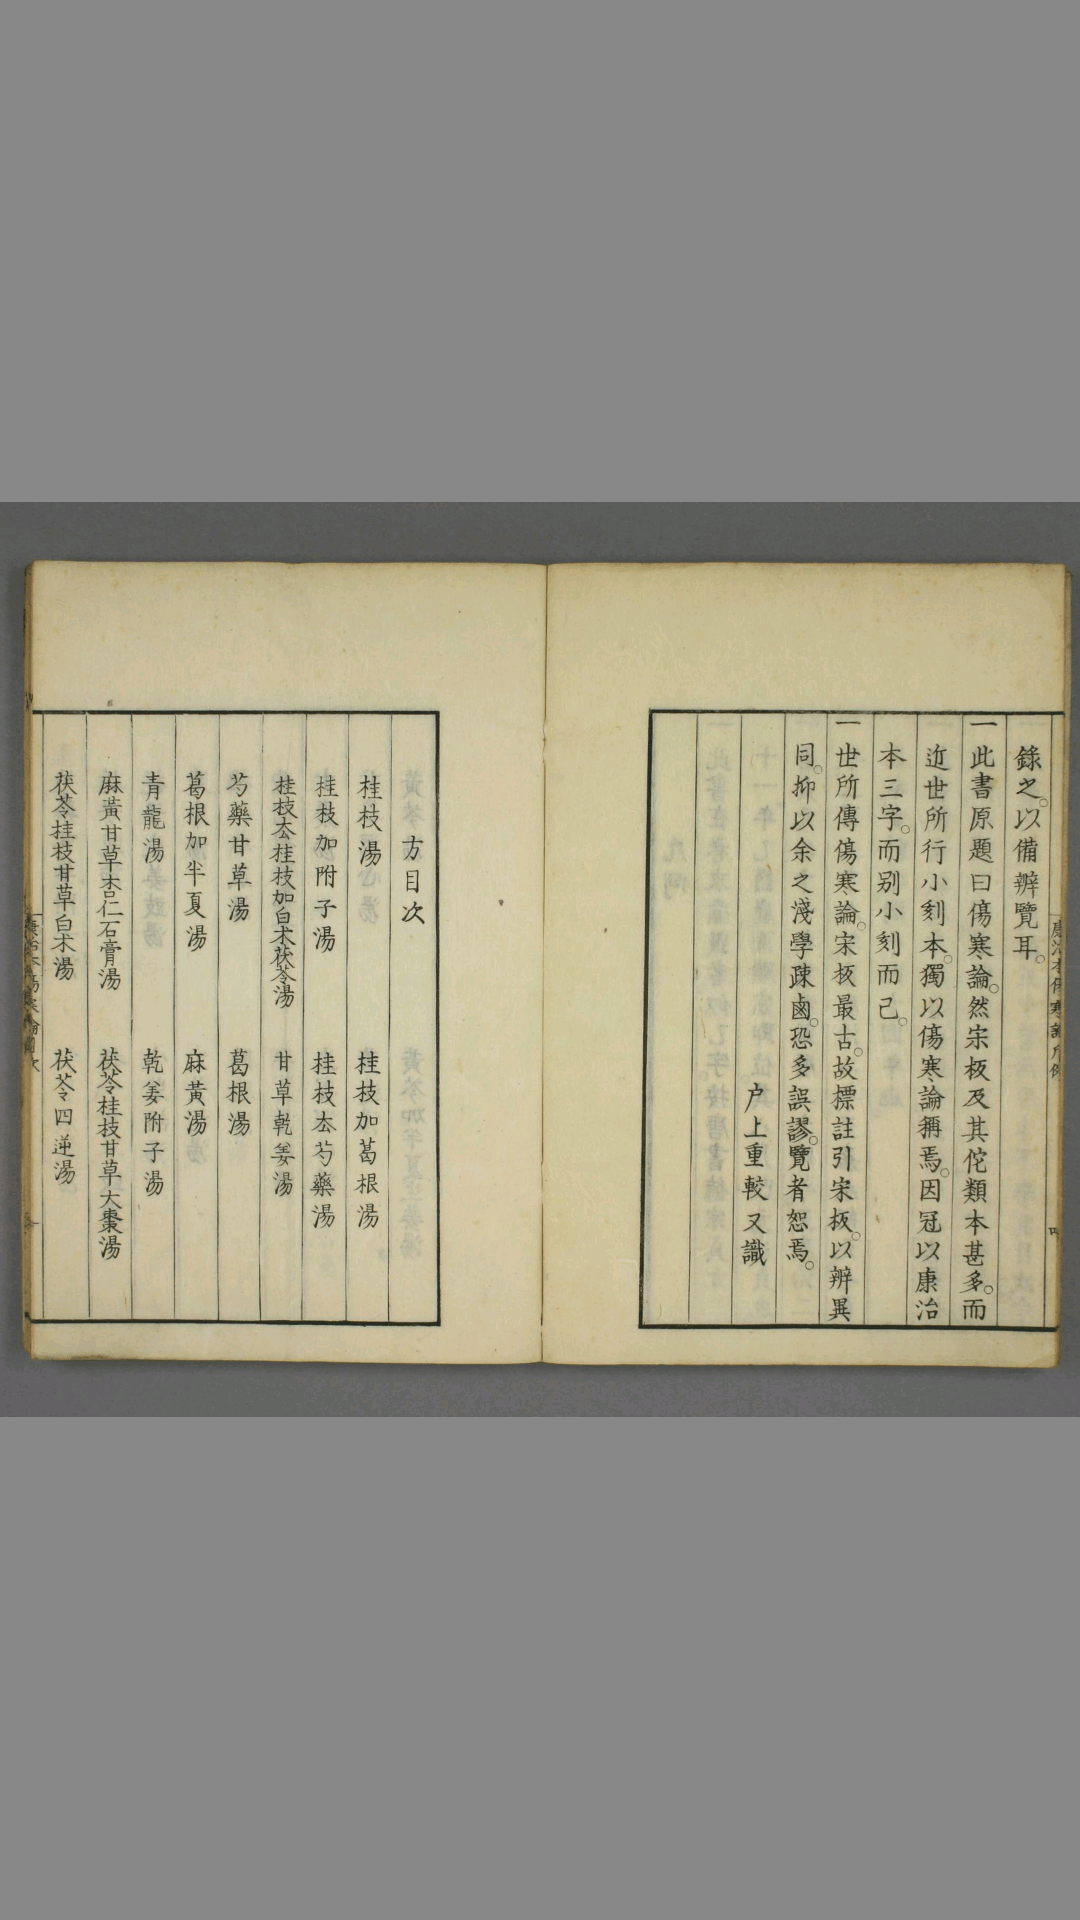 錄之。以備辨覽耳。
一此書原題曰傷寒論。然宋板及其佗類本甚多。而
近世所行小刻本。獨以傷寒論稱焉。因冠以康治
本三字。而别小刻而已。
一世所傳傷寒論。宋板最古。故標註引宋板。以辨異
同。抑以余之淺學疎鹵。恐多誤謬。覽者恕焉。
戶上重較又識
方目次
桂枝湯　桂枝加葛根湯
桂枝加附子湯　桂枝厺芍藥湯
桂枝厺桂枝加白术茯苓湯　甘草乾姜湯
芍藥甘草湯　葛根湯
葛根加半夏湯　麻黃湯
青龍湯　乾姜附子湯
麻黃甘草杏仁石膏湯　茯苓桂枝甘草大棗湯
茯苓桂枝甘草白术湯　茯苓四逆湯